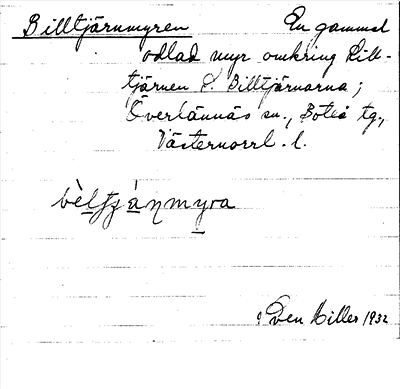 Billtjärnmyren En gammal
odlad myr omkring Lill-
tjärnen S. Billtjärnarna;
Överlännäs sn., Boteå tg.,
Västernorrl. l.
Sven Hiller 1932